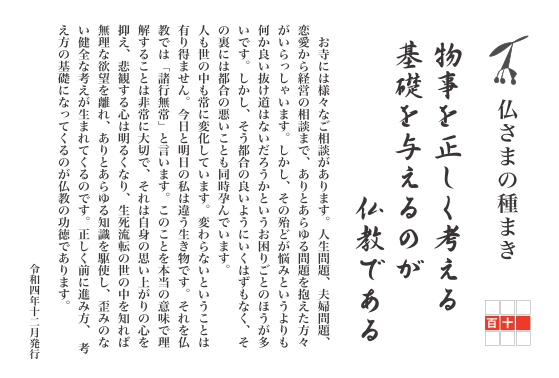 仏さまの種まき
百十
物事を正しく考える
基礎を与えるのが
仏教である
お寺には様々なご相談があります。人生問題、夫婦問題、
恋愛から経営の相談まで、ありとあらゆる問題を抱えた方々
がいらっしゃいます。しかし、その殆どが悩みというよりも
何か良い抜け道はないだろうかというお困りごとのほうが多
いです。しかし、そう都合の良いようにいくはずもなく、そ
の裏には都合の悪いことも同時孕んでいます。
人も世の中も常に変化しています。変わらないということは
有り得ません。今日と明日の私は違う生き物です。それを仏
教では「諸行無常」と言います。このことを本当の意味で理
解することは非常に大切で、それは自身の思い上がりの心を
抑え、悲観する心は明るくなり、生死流転の世の中を知れば
無理な欲望を離れ、ありとあらゆる知識を駆使し、歪みのな
い健全な考えが生まれてくるのです。正しく前に進み方、考
え方の基礎になってくるのが仏教の功徳であります。
令和四年十二月発行